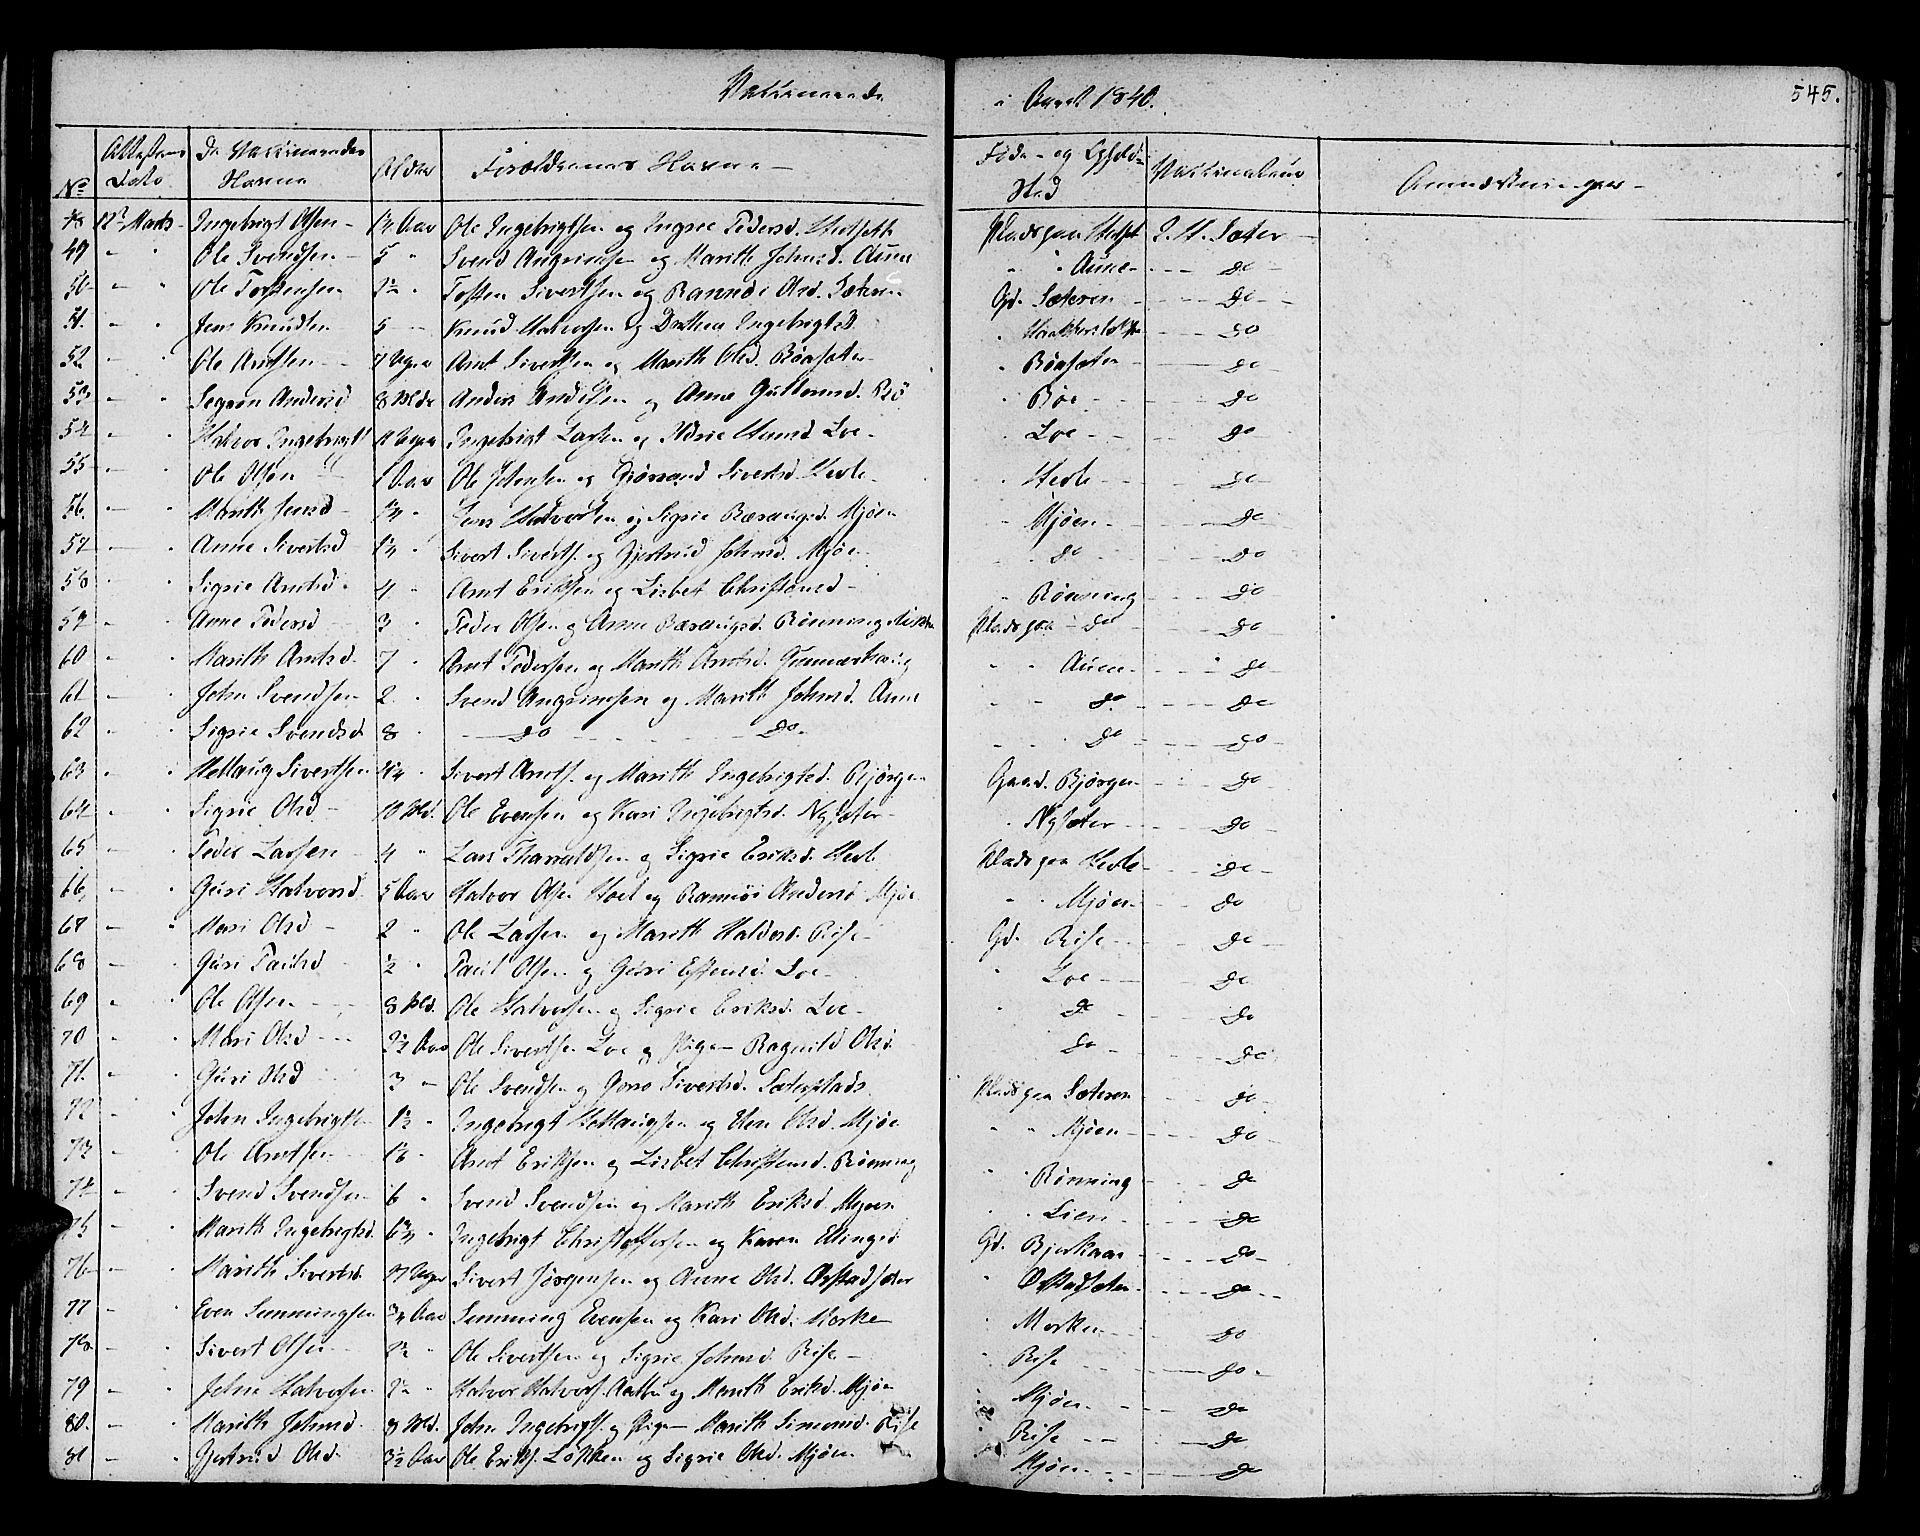 Vaccinerede i Aaret 1840. 545.
No Attestens Dato De Vaccineredes Navne Alder Forældrenes Navne Føde- og Opholds Sted Vaccinateur Anmærkninger
48 12 Marts Ingebrigt Olsen 1¼ Aar Ole Ingebrigtsen og Ingrie Pedersd. Pladsgaa E. H. Sæter
49 " " Ole Svendsen 5 " Svend Angrimsen og Marith Johnsd. Aune " " Aune do
50 " " Ole Tostensen 2½ " Tosten Sivertsen og Rannøi Olsd. Sæteren Gd. Sæteren do
51. " " Jens Knudsen 5 Knud Halvorsen og Dorthea Ingebrigtsd. " do
52. " " Ole Arntsen 7 Uger Arnt Sivertsen og Marith Olsd. Bøasæter " Bøasæter do
53 " " Segrie Andersd 8 Mdr Anders Andersen og Anne Guttormsd. Bø " Bøe do
54 " " Halvor Ingebrigts 11 Uger Ingebrigt Larsen og Loe " Loe do
55 " " Ole Olsen 1 Aar Ole Johnsen og Sivertsd. Hevle " Hevle do
56. " " Marith Jensd 1¼ " Jens Halvorsen og Sigrie Bæraugsd. Mjøen " Mjøen do
57 " " Anne Sivertsd 1¼ " Sivert Siverts. og Gjertrud Johnsd. Mjøe " do do
58 " " Sigrie Arntsd. 4 " Arnt Eriksen og Lisbet Christensd " Rønning do
59 " " Anne Pedersd 3 " Peder Olsen og Anne Bæraugsd. Rønning Pladsgaa do do
60 " " Marith Arntsd. 7 " Arnt Pedersen og Marith Arntsd. " " Aune do
61 " " John Svendsen 2 " Svend Angrimsen og Marith Johnsd. Aune " " do do
62 " " Sigrie Svendsd 8 " do do " " do do
63 " " Hellaug Sivertsen " Sivert Arnts. og Marith Ingebrigtsd. Bjørgen Gaard. Bjørgen do
64 " " Sigrie Olsd 10 Md. Ole Evensen og Kari Ingebrigtsd. Nysæter " Nysæter do
65 " " Peder Larsen 4 " Lars Tharaldsen og Sigrie Eriksd. Hevle Pladsgaa Hevle do
66, " " Guri Halvorsd. 5 Aar Halvor Olsen Hoel og Rannøi Andersd Mjøe " " Mjøen do
67 " " Mari Olsd 2 " Ole Larsen og Marith Haldosd. Rise Gd. Rise do
68 " " Guri Paulsd ½ " Paul Olsen og Guri Estensd. Loe " Loe do
69 " " Ole Olsen 8 Md. Ole Halvorsen og Sigrie Eriksd. Loe " do do
70 " " Mari Olsd 2½ Aar Ole Sivertsen Loe og Pige Ragnild Olsd do do
71. " " Guri Olsd 3 " Ole Svendsen og Goro Sivertsd. Sæterplads Pladsgaa Sæteren do
72 " " John Ingebrigtsen 1½ " Ingebrigt Hellaugsen og Olsd. Mjøe " " Mjøen do
73 " " Ole Arntsen " Arnt Eriksen og Lisbet Christensd. Rønning " " Rønning do
74 " " Svend Svendsen 6 " Svend Svendsen og Marith Eriksd. " " Lien do
75 " " Marith Ingebrigtsd. " Ingebrigt Christoffersen og Karen Ellingsd Gd. Bjerkaas do
76 " " Marith Sivertsd. 17 Uger Sivert Jørgensen og Anne Olsd. Ørstadsæter " Ørstadsæter do
77 " " Even Semmingsen ¾ Aar Semming Evensen og Kari Olsd. Morke " Morken do
78 " " Sivert Olsen 2½ " Ole Sivertsen og Sigrie Johnsd. Rise " Rise do
79 " " John Halvorsen " Halvor Halvors. og Marith Eriksd. Mjøen " Mjøen do
80. " " Marith Johnsd. 8 Md. John Ingebrigts. og Pige Marith Simensd. Rise " Rise do
81 " " Gjertrud Olsd. 3½ Aar Ole Eriks. Løkken og Sigrie Olsd. Mjøen " Mjøen do